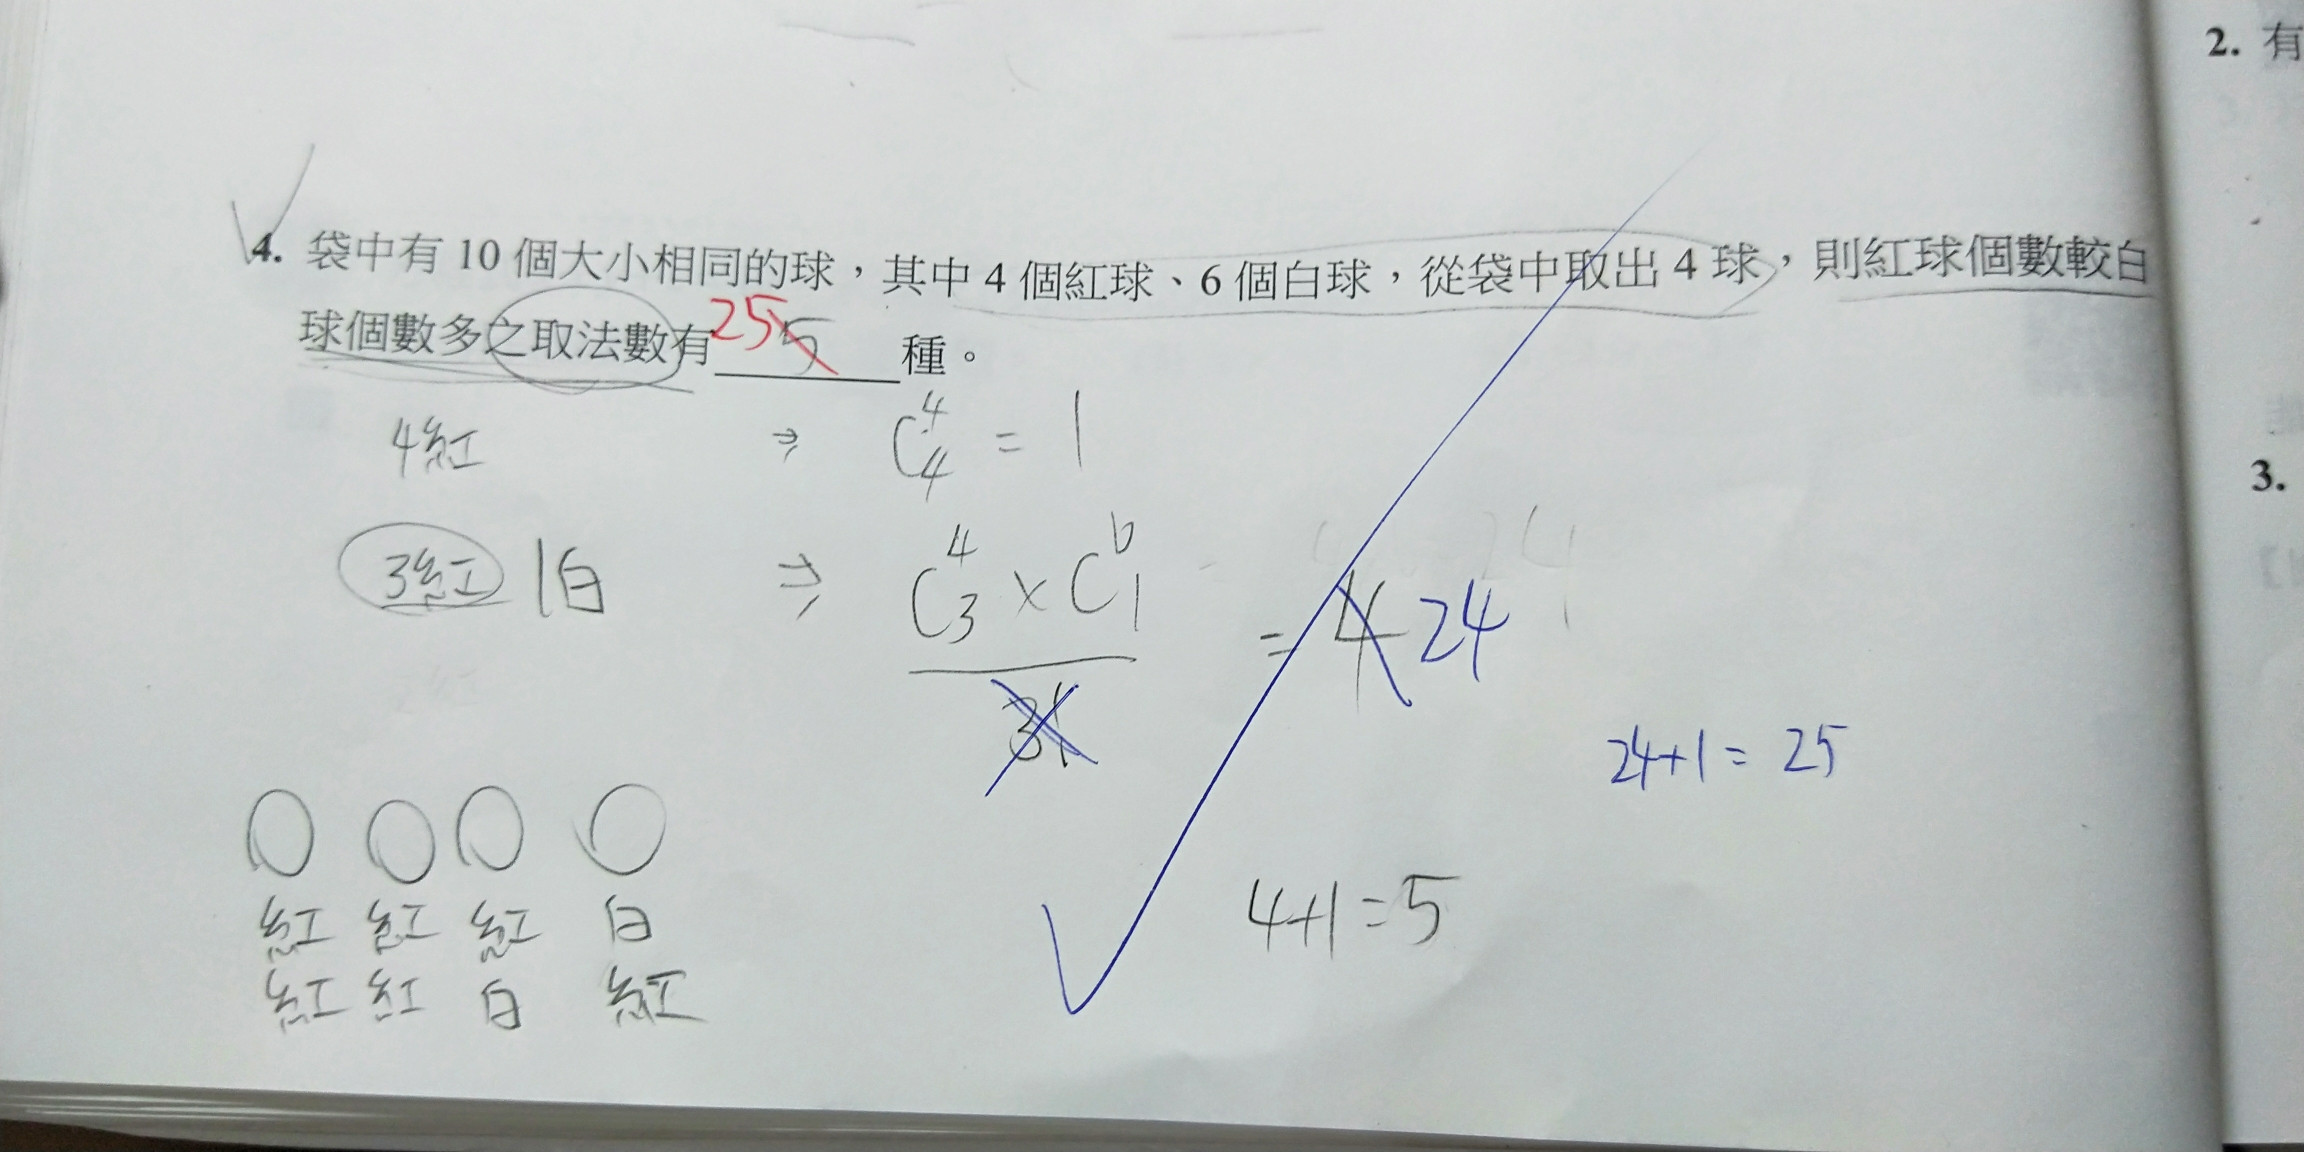 2. 有
4. 袋中有 10 個大小相同的球，其中 4 個紅球、6 個白球，從袋中取出 4 球，則紅球個數較白
球個數多之取法數有 25 5 種。
4紅 ⇒ C⁴₄ = 1
3.
3紅 1白 ⇒ C⁴₃ × C⁶₁ = 4 24
3!
24+1= 25
4+1=5
紅 紅 紅 白
紅 紅 白 紅